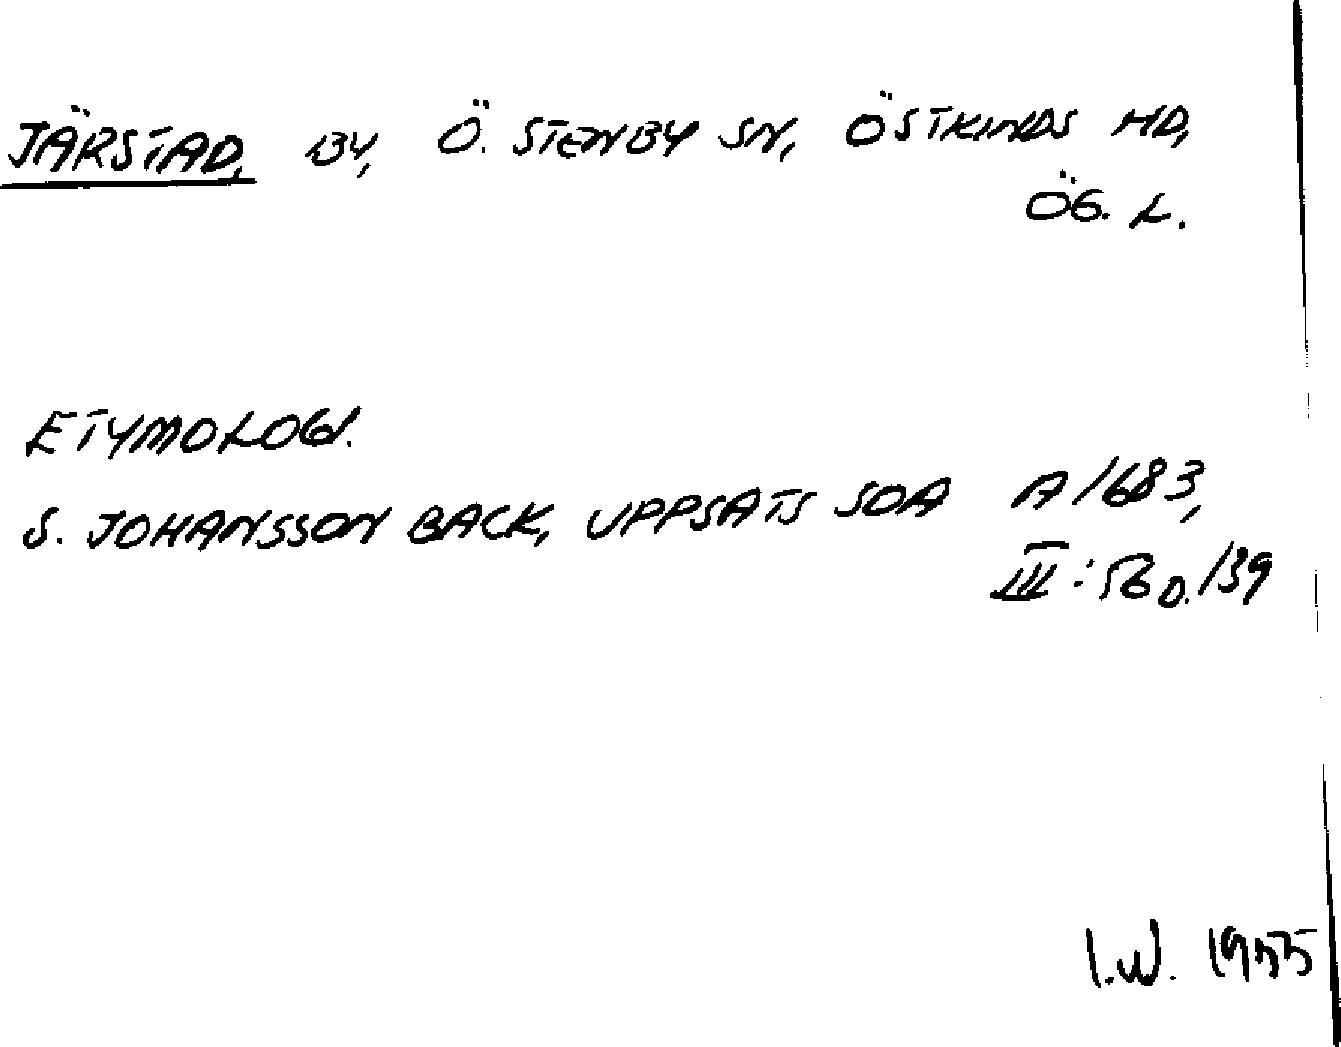 JÄRSTAD, BY, Ö. STENBY SN, ÖSTKINDS HD,
ÖG. L.
ETYMOLOGI.
S. JOHANSSON BACK, UPPSATS SOA A/683,
III: 56 D./39
I.W. 1955